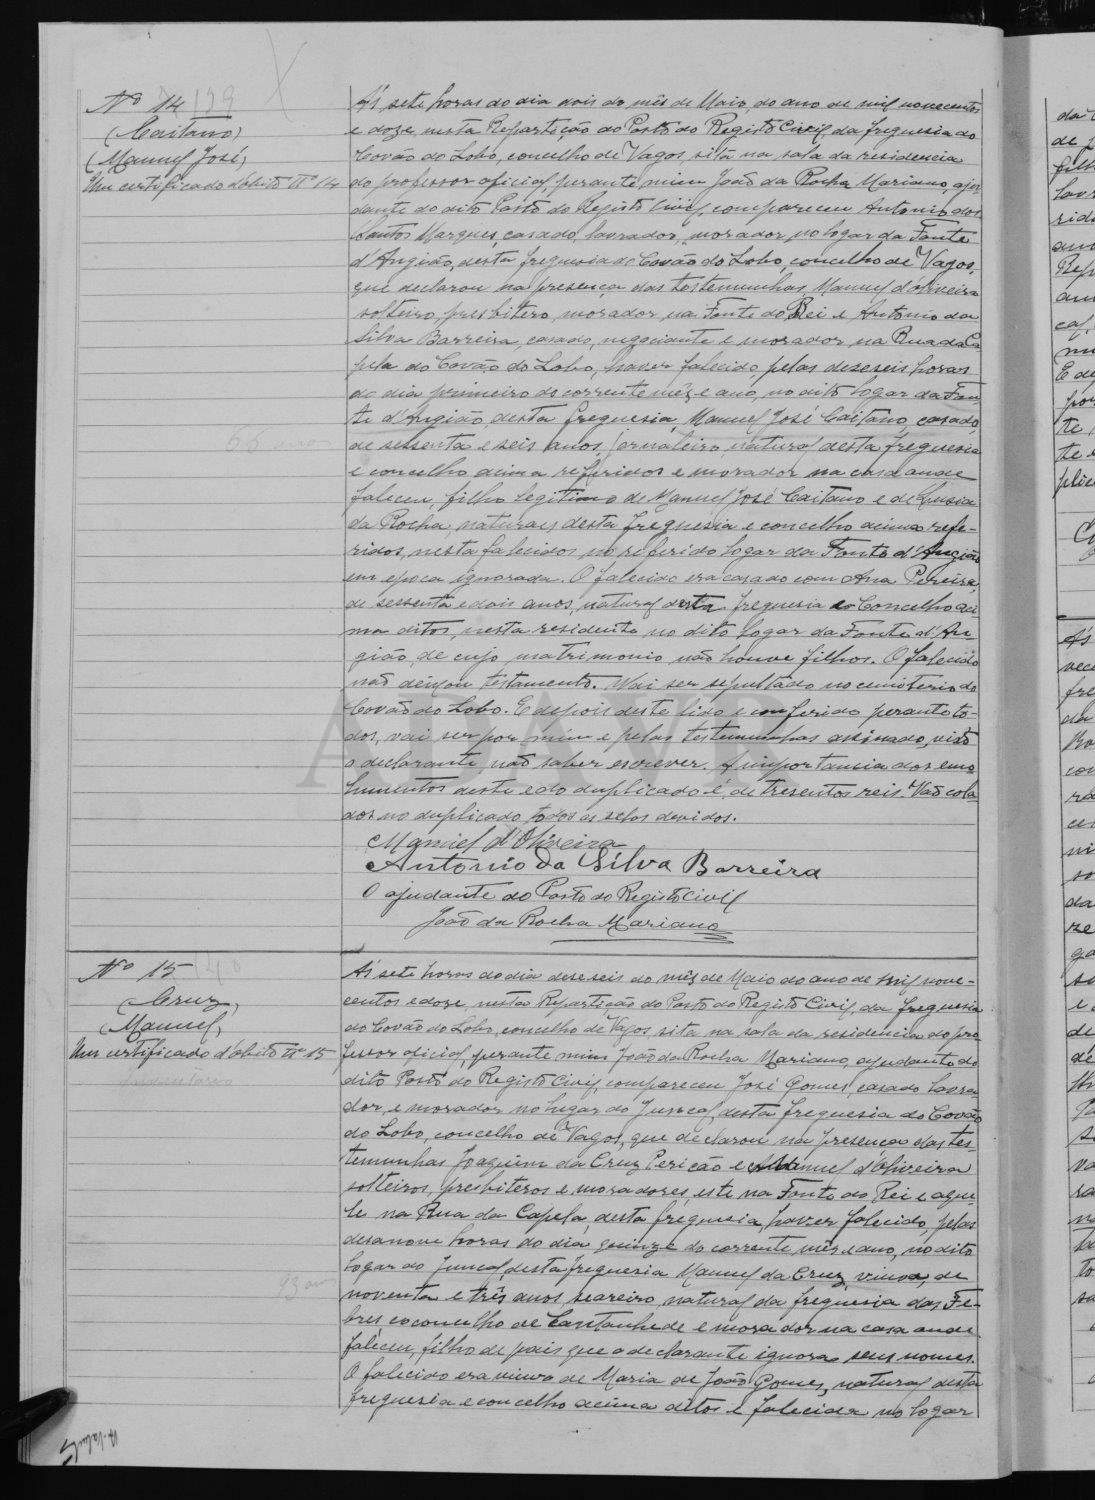 Nº 14 139
(Caitano)
(Manuel José)
Um certificado d'óbito nº 14
66 anos
Ás sete horas do dia dois do mês de Maio, do ano de mil novecentos
e doze, nesta Repartição do Posto do Registo Civil, da freguesia do
Covão do Lobo, concelho de Vagos, sita na sala da residencia
do professor oficial, perante mim João da Rocha Mariano, aju-
dante do dito Posto do Registo Civil, compareceu Antonio dos
Santos Marques, casado, lavrador, morador no logar da Fonte
d'Angião, desta freguesia do Covão do Lobo, concelho de Vagos,
que declarou na presença das testemunhas Manuel d'Oliveira
solteiro, presbitero, morador na Fonte do Rei e Antonio da
Silva Barreira, casado, negociante e morador na Rua da Ca-
pela do Covão do Lobo, haver falecido pelas deseseis horas
do dia primeiro do corrente mêz e ano, no dito logar da Fon-
te d'Angião, desta freguesia, Manuel José Caitano, casado,
de sessenta e seis anos, jornaleiro, natural desta freguesia
e concelho acima referidos e morador na casa onde
faleceu, filho legitimo de Manuel José Caitano e de Luisia
da Rocha, naturaes desta freguesia e concelho acima refe-
ridos, nesta falecidos no referido logar da Fonte d'Angião
em epoca ignorada. O falecido era casado com Ana Pereira,
de sessenta e dois anos, natural desta freguesia e Concelho aci-
ma ditos, nesta residente no dito logar da Fonte d'An-
gião, de cujo matrimonio não houve filhos. O falecido
não deixou testamento. Vai ser sepultado no cemiterio do
Covão do Lobo. E depois deste lido e conferido perante to-
dos, vai ser por mim e pelas testemunhas assinado, visto
o declarante não saber escrever. A importancia dos emo-
lumentos deste e do duplicado é de tresentos reis. Vão cola-
dos no duplicado todos os selos devidos.
Manuel d'Oliveira
Antonio da Silva Barreira
O ajudante do Posto do Registo Civil
João da Rocha Mariano
Nº 15 140
Cruz,
(Manuel,
Um certificado d'óbito nº 15
93 anos
Ás sete horas do dia deseseis do mêz de Maio do ano de mil nove-
centos e doze, nesta Repartição do Posto do Registo Civil, da freguesia
do Covão do Lobo, concelho de Vagos sita na sala da residencia do pro-
fessor oficial, perante mim João da Rocha Mariano, ajudante do
dito Posto do Registo Civil, compareceu José Gomes, casado lavra-
dor, e morador no lugar do Juncal, desta freguesia do Covão
do Lobo, concelho de Vagos, que declarou na presença das tes-
temunhas Joaquim da Cruz Pericão e Manuel d'Oliveira
solteiros, presbiteros e moradores, este na Fonte do Rei e aque-
le na Rua da Capela, desta freguesia, haver falecido, pelas
desanove horas do dia quinze do corrente mês e ano, no dito
logar do Juncal, desta freguesia Manuel da Cruz, viuvo, de
noventa e três anos, seareiro, natural da freguesia das Fe-
bres e concelho de Cantanhede e morador na casa onde
faleceu, filho de pais que o declarante ignora seus nomes.
O falecido era viuvo de Maria de João Gomes, natural desta
freguesia e concelho acima ditos e falecida no logar